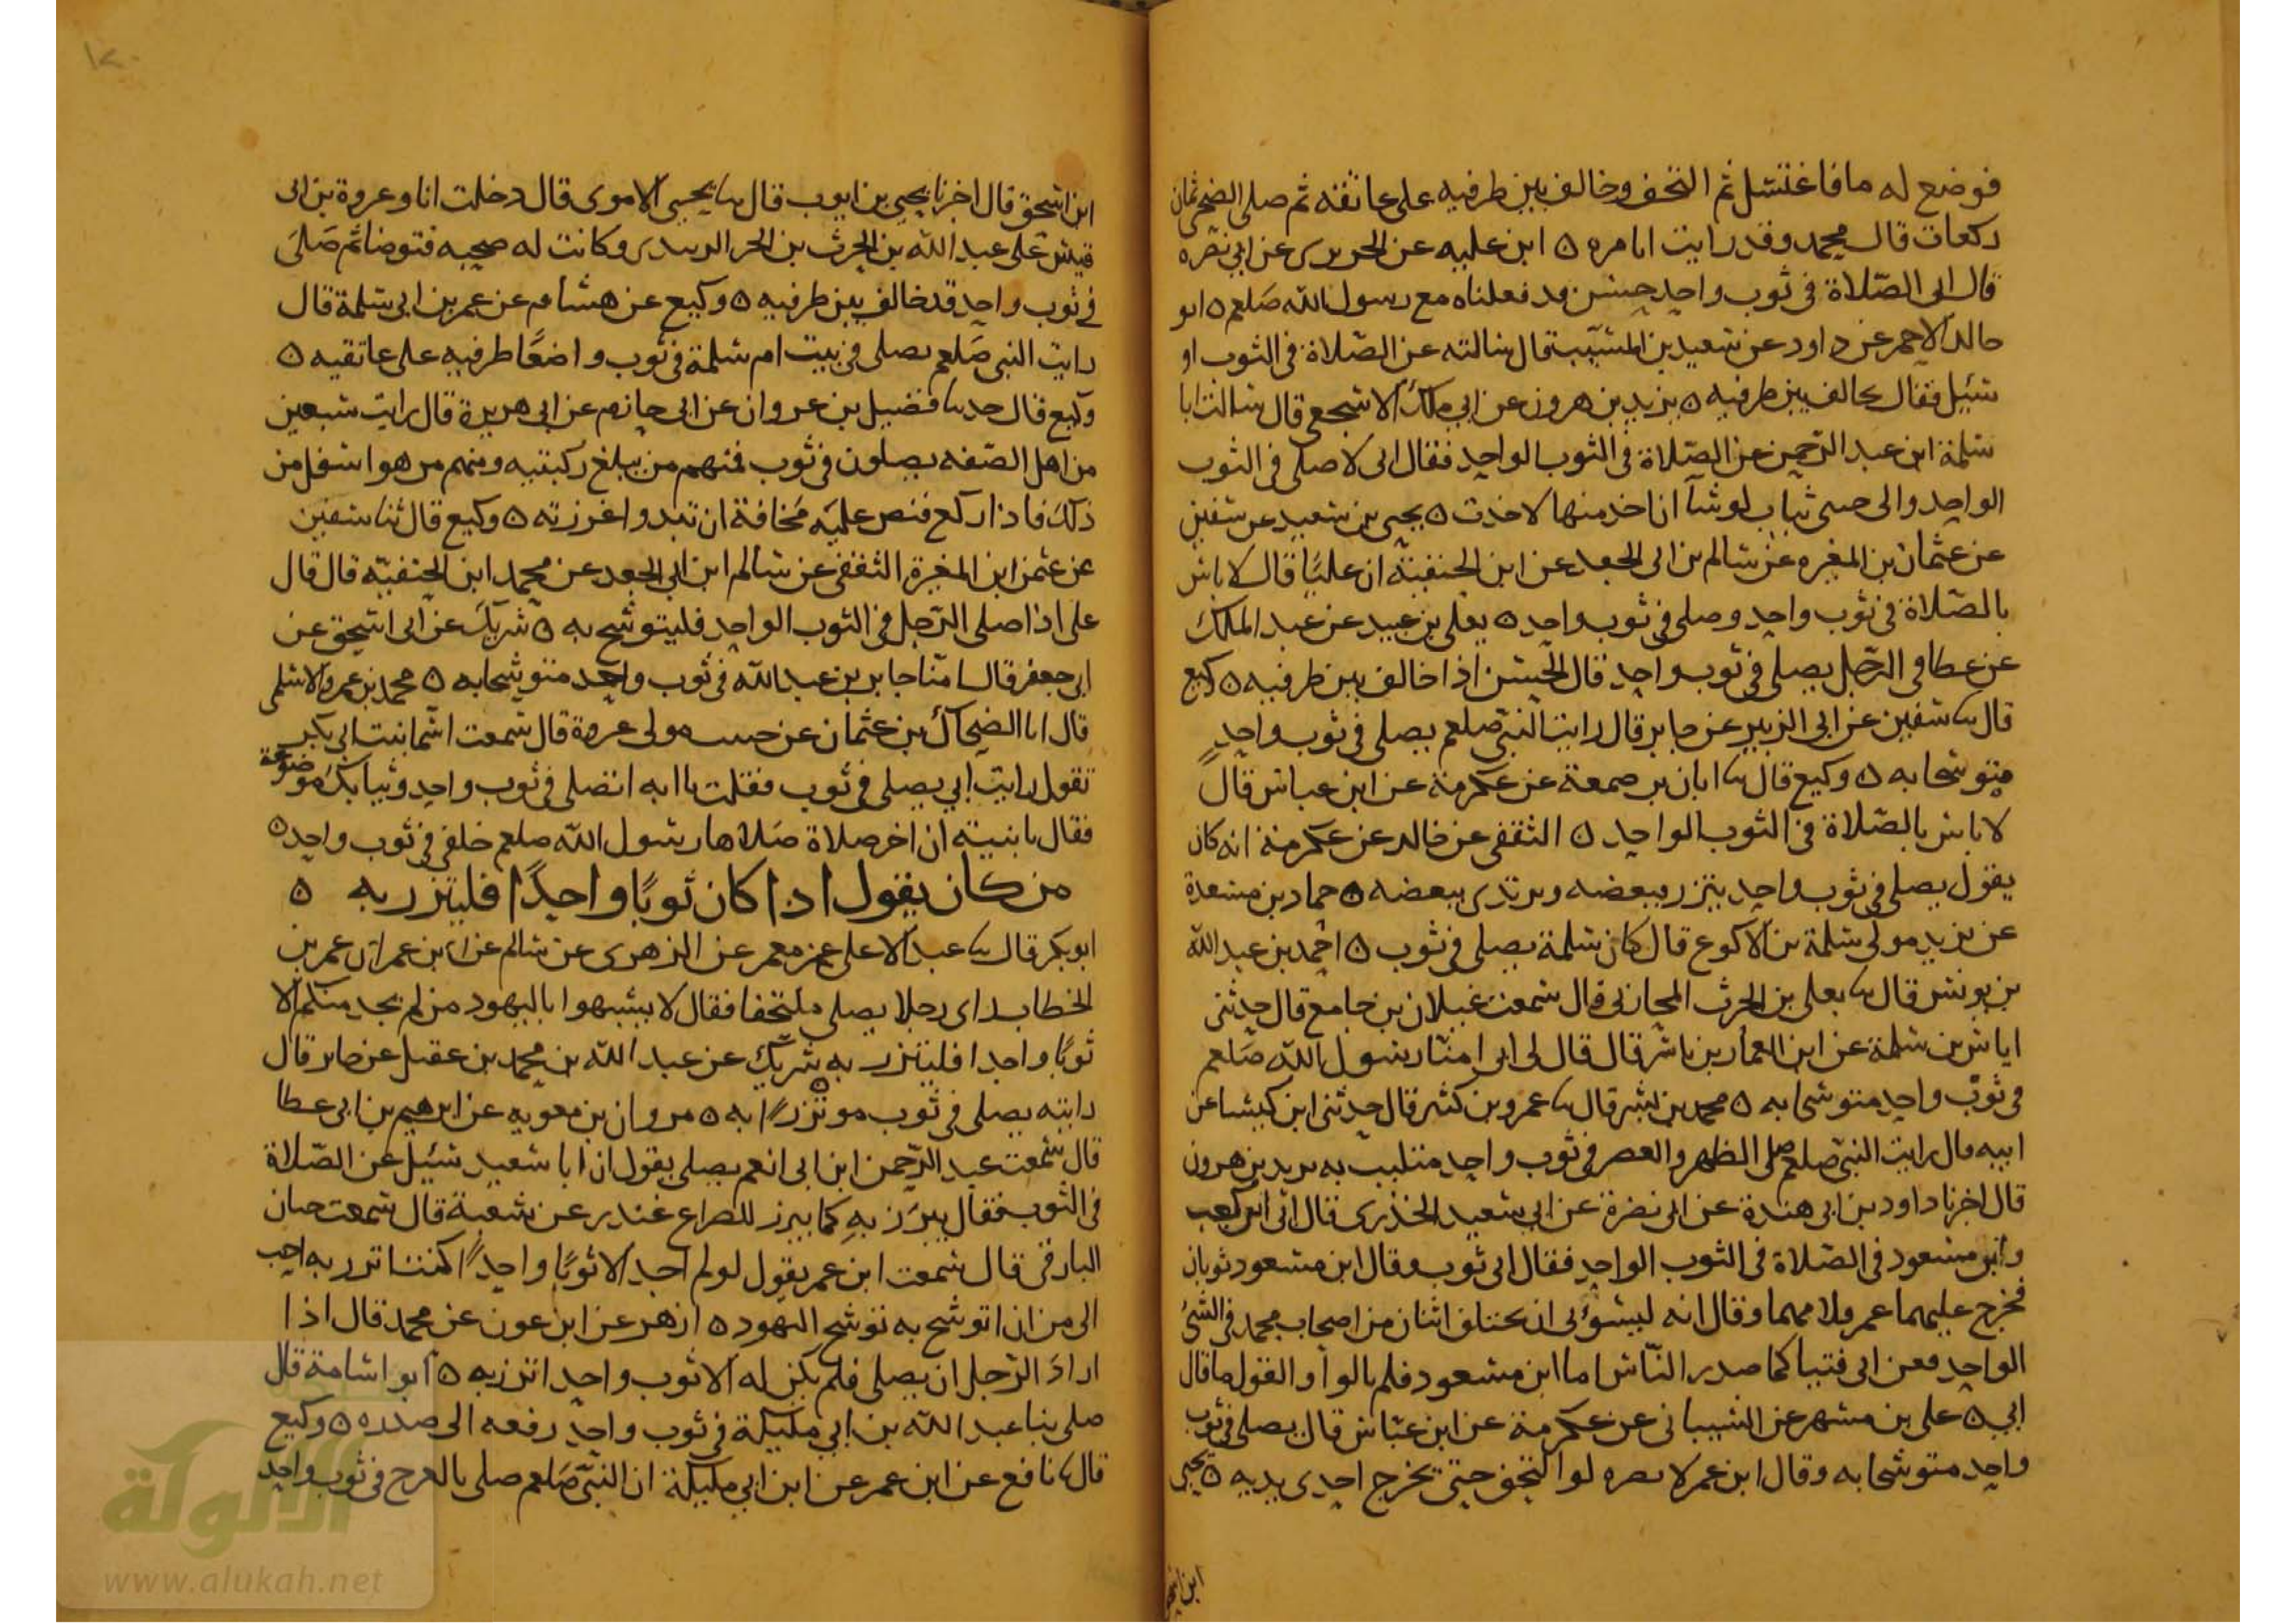 فوضع له ما فاغتسل ثم التحف وخالف بين طرفيه على عاتقه ثم صلى الضحى ثمان
ركعات قال محمد وقد رايت انا مره ٥ ابن عليه عن الحريرى عن ابي نضره
قال ابى الصّلاة فى ثوب واحد حسن قد فعلناه مع رسول الله صَلعم ٥ ابو
خالد الاحمر عن داود عن سعيد بن المسَيّب قال سالته عن الصّلاة فى الثوب او
سئيل فقال يخالف بين طرفيه ٥ يزيد بن هرون عن ابي ملك الاشجعى قال سالت ابا
سلمة ابن عبد الرّحمن عن الصّلاة فى الثوب الواحد فقال انى لاصلى فى الثوب
الواحد والى ثياب لوشآ ان اخذ منها لاخذت ٥ يحيى بن سعيد عن سفين
عن عثمان بن المغيره عن سالم بن ابى الجعد عن ابن الحنفيّة ان عليًا قال لا باس
بالصّلاة فى ثوب واحد وصلى فى ثوب واحد ٥ يعلى بن عبيد عن عبد الملك
عن عطا فى الرّجل يصلى فى ثوب واحد قال الحسن اذا خالف بين طرفيه ٥ وكيع
قال سا سفين عن ابى الزبير عن جابر قال رايت النبيّ صلعم يصلى فى ثوب واحدٍ
متوشحا به ٥ وكيع قال سا ابان بن صمعة عن عكرمة عن ابن عباس قال
لا باس بالصّلاة فى الثوب الواحد ٥ الثقفى عن خالد عن عكرمة انه كان
يقول يصلى فى ثوب واحد يتزر ببعضه ويرتدى ببعضه ٥ حماد بن مسعدة
عن يزيد مولى سلمة بن الاكوع قال كان سلمة يصلى فى ثوب ٥ احمد بن عبد الله
بن يونس قال سا يعلى بن الحرث المحاربى قال سمعت غيلان بن جامع قال حدثنى
اياس بن سلمة عن ابن العمار بن ياسر قال قال لى ابى امنّا رسول الله صَلعم
فى ثوب واحد متوشحا به ٥ محمد بن بشر قال سا عمرو بن كثير قال حدثنى ابن كيسا عن
ابيه قال رايت النبيّ صلعم صلى الظهر والعصر فى ثوب واحد متلبب به يزيد بن هرون
قال اخبرنا داود بن ابى هندة عن ابى نضرة عن ابي سعيد الخذرى قال ابى ابن كعب
وابن مسعود فى الصّلاة فى الثوب الواحد فقال ابى ثوب وقال ابن مسعود ثوبان
فخرج عليهما عمر فلامهما وقال انه ليسؤنى ان يختلف اثنان من اصحاب محمد فى الشئ
الواحد فعن اى فتيا كما صدر النّاس اما ابن مسعود فلم يالوا والقول ما قال
ابي ٥ على بن مسهر عن الشيبانى عن عكرمة عن ابن عبّاس قال يصلى فى ثوب
واحد متوشحا به وقال ابن عمر لا يضره لو التحف حتى يخرج احدى يديه ٥ يحيى
ابن اسحق
ابن اسحق قال اخبرنا يحيى بن ايوب قال سا يحيى الاموى قال دخلت انا وعروة بن ابى
قيس على عبد الله بن الحرث بن الحر الزبيدى وكانت له صحبه فتوضا ثم صَلى
فى ثوب واحد قد خالف بين طرفيه ٥ وكيع عن هشام عن عمر بن ابى سلمة قال
رايت النبى صَلعم يصلى فى بيت ام سلمة فى ثوب واضعًا طرفيه على عاتقيه ٥
وكيع قال حدسا فضيل بن غزوان عن ابى حازم عن ابى هريرة قال رايت سبعين
من اهل الصّفه يصلون فى ثوب فمنهم من يبلغ ركبتيه ومنهم من هو اسفل من
ذلك فاذا ركع قبض عليَه مَخافة ان تبدوا عورته ٥ وكيع قال ثنا سفين
عن عثمن ابن المغيرة الثقفى عن سالم ابن ابى الجعد عن محمد ابن الحنفيّة قال قال
على اذا صلى الرّجل فى الثوب الواحد فليتوشح به ٥ شريك عن ابى اسحق عن
ابى جعفر قال امّنا جابر بن عبد الله فى ثوب واحد متوشحا به ٥ محمد بن عمرو الاسلمى
قال انا الضحاك بن عثمان عن حبيب مولى عروة قال سمعت اسما بنت ابى بكر
تقول رايت ابي يصلى فى ثوب فقلت يا ابه اتصلى فى ثوب واحد وثيابك موضوعة
فقال يا بنية ان اخر صلاة صَلاها رسول الله صلعم خلفى فى ثوب واحد ٥
من كان يقول اذا كان ثوبًا واحدًا فليتزر به ٥
ابو بكر قال سا عبد الاعلى عن معمر عن الزهرى عن سالم عن ابن عمر ان عمر بن
الخطاب راى رجلا يصلى ملتحفا فقال لا تشبهوا باليهود من لم يجد منكم الا
ثوبًا واحدا فليتزر به ٥ شريك عن عبد الله بن محمد بن عقيل عن جابر قال
رايته يصلى فى ثوب موتزرًا به ٥ مروان بن معويه عن ابرهيم بن ابى عطا
قال سمعت عبد الرّحمن ابن ابى انعم يصلى يقول ان ابا سعيد سئيل عن الصّلاة
فى الثوب فقال يبرَز بهِ كما يبرز للصراع غندر عن شعبة قال سمعت حبان
البارقى قال سمعت ابن عمر يقول لو لم اجد الا ثوبًا واحدًا كنت اتزر به احب
الى من ان اتوشح به توشح اليهود ٥ ازهر عن ابن عون عن محمد قال اذا
ارادَ الرّجل ان يصلى فلم يكن له الا ثوب واحد اتزر به ٥ ابو اسامة قال
صلى بنا عبد الله بن ابي مليكة فى ثوب واحد رفعه الى صدره ٥ وكيع
قال سا نافع عن ابن عمر عن ابن ابي مليكة ان النبيّ صَلعم صلى بالعرج فى ثوب واحد
١٢٠
الألوكة
www.alukah.net